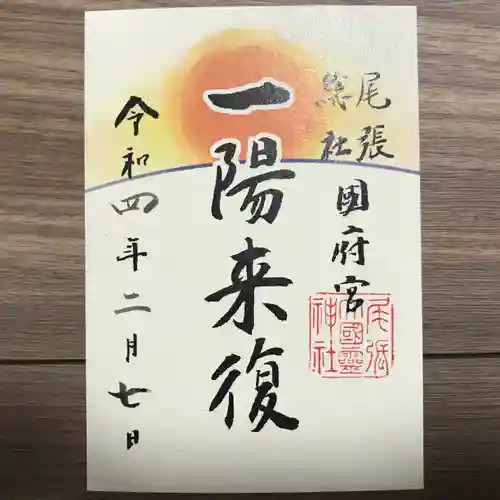 尾張
総社
国府宮
一陽来復
令和四年二月七日
尾張
大國霊
神社